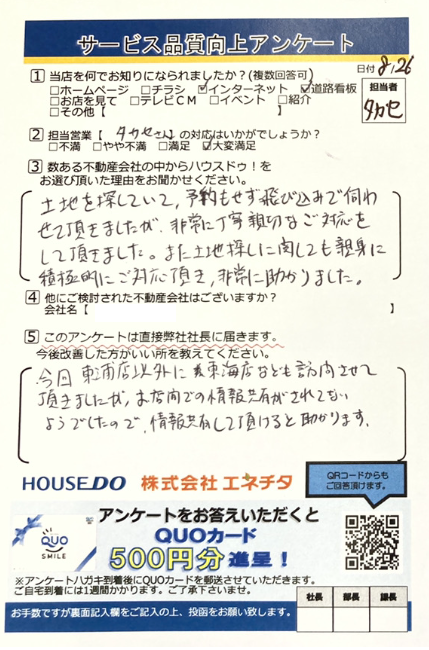 サービス品質向上アンケート
日付 8/26
1 当店を何でお知りになられましたか？(複数回答可)
□ホームページ □チラシ ☑インターネット ☑道路看板
□お店を見て □テレビCM □イベント □紹介
□その他【 】
担当者
タカセ
2 担当営業【 タカセさん 】の対応はいかがでしょうか？
□不満 □やや不満 □満足 ☑大変満足
3 数ある不動産会社の中からハウスドゥ！を
お選び頂いた理由をお聞かせください。
土地を探していて、予約もせず飛び込みで伺わ
せて頂きましたが、非常に丁寧親切なご対応を
して頂きました。また土地探しに関しても親身に
積極的にご対応頂き、非常に助かりました。
4 他にご検討された不動産会社はございますか？
会社名【 】
5 このアンケートは直接弊社社長に届きます。
今後改善した方がいい所を教えてください。
今回 東浦店以外に東海店なども訪問させて
頂きましたが、お店間での情報共有がされてない
ようでしたので、情報共有して頂けると助かります。
HOUSE DO 株式会社 エネチタ
QRコードからも
ご回答頂けます。
アンケートをお答えいただくと
QUOカード
500円分 進呈！
QUO
SMILE
※アンケートハガキ到着後にQUOカードを郵送させていただきます。
ご自宅到着には1週間かかります。ご了承下さいませ。
社長 部長 課長
お手数ですが裏面記入欄をご記入の上、投函をお願い致します。